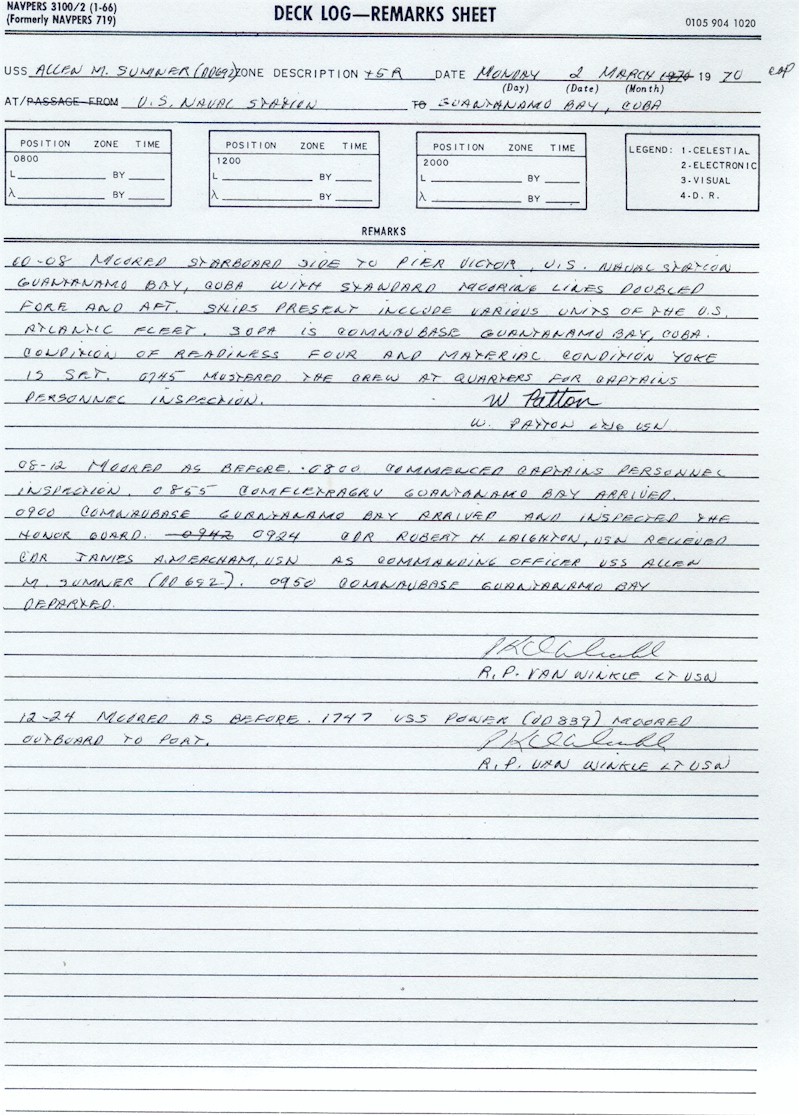 NAVPERS 3100/2 (1-66)
(Formerly NAVPERS 719)
DECK LOG—REMARKS SHEET
0105 904 1020
USS ALLEN M. SUMNER (DD692) ZONE DESCRIPTION +5R DATE MONDAY 2 MARCH 1970 19 70
(Day) (Date) (Month)
AT/PASSAGE FROM U.S. NAVAL STATION TO GUANTANAMO BAY, CUBA
POSITION ZONE TIME
0800
L BY
λ BY
POSITION ZONE TIME
1200
L BY
λ BY
POSITION ZONE TIME
2000
L BY
λ BY
LEGEND: 1-CELESTIAL
2-ELECTRONIC
3-VISUAL
4-D. R.
REMARKS
00-08 MOORED STARBOARD SIDE TO PIER VICTOR, U.S. NAVAL STATION
GUANTANAMO BAY, CUBA WITH STANDARD MOORING LINES DOUBLED
FORE AND AFT. SHIPS PRESENT INCLUDE VARIOUS UNITS OF THE U.S.
ATLANTIC FLEET. SOPA IS COMNAVBASE GUANTANAMO BAY, CUBA.
CONDITION OF READINESS FOUR AND MATERIAL CONDITION YOKE
IS SET. 0745 MUSTERED THE CREW AT QUARTERS FOR CAPTAINS
PERSONNEL INSPECTION. W Patton
W. PATTON LTJG USN
08-12 MOORED AS BEFORE. 0800 COMMENCED CAPTAINS PERSONNEL
INSPECTION. 0855 COMFLETRAGRU GUANTANAMO BAY ARRIVED.
0900 COMNAVBASE GUANTANAMO BAY ARRIVED AND INSPECTED THE
HONOR GUARD. 0942 0924 CDR ROBERT H. LAIGHTON, USN RELIEVED
CDR JAMES A. MEACHAM, USN AS COMMANDING OFFICER USS ALLEN
M. SUMNER (DD 692). 0950 COMNAVBASE GUANTANAMO BAY
DEPARTED.
R.P. VAN WINKLE LT USN
12-24 MOORED AS BEFORE. 1747 USS POWER (DD 839) MOORED
OUTBOARD TO PORT.
R.P. VAN WINKLE LT USN